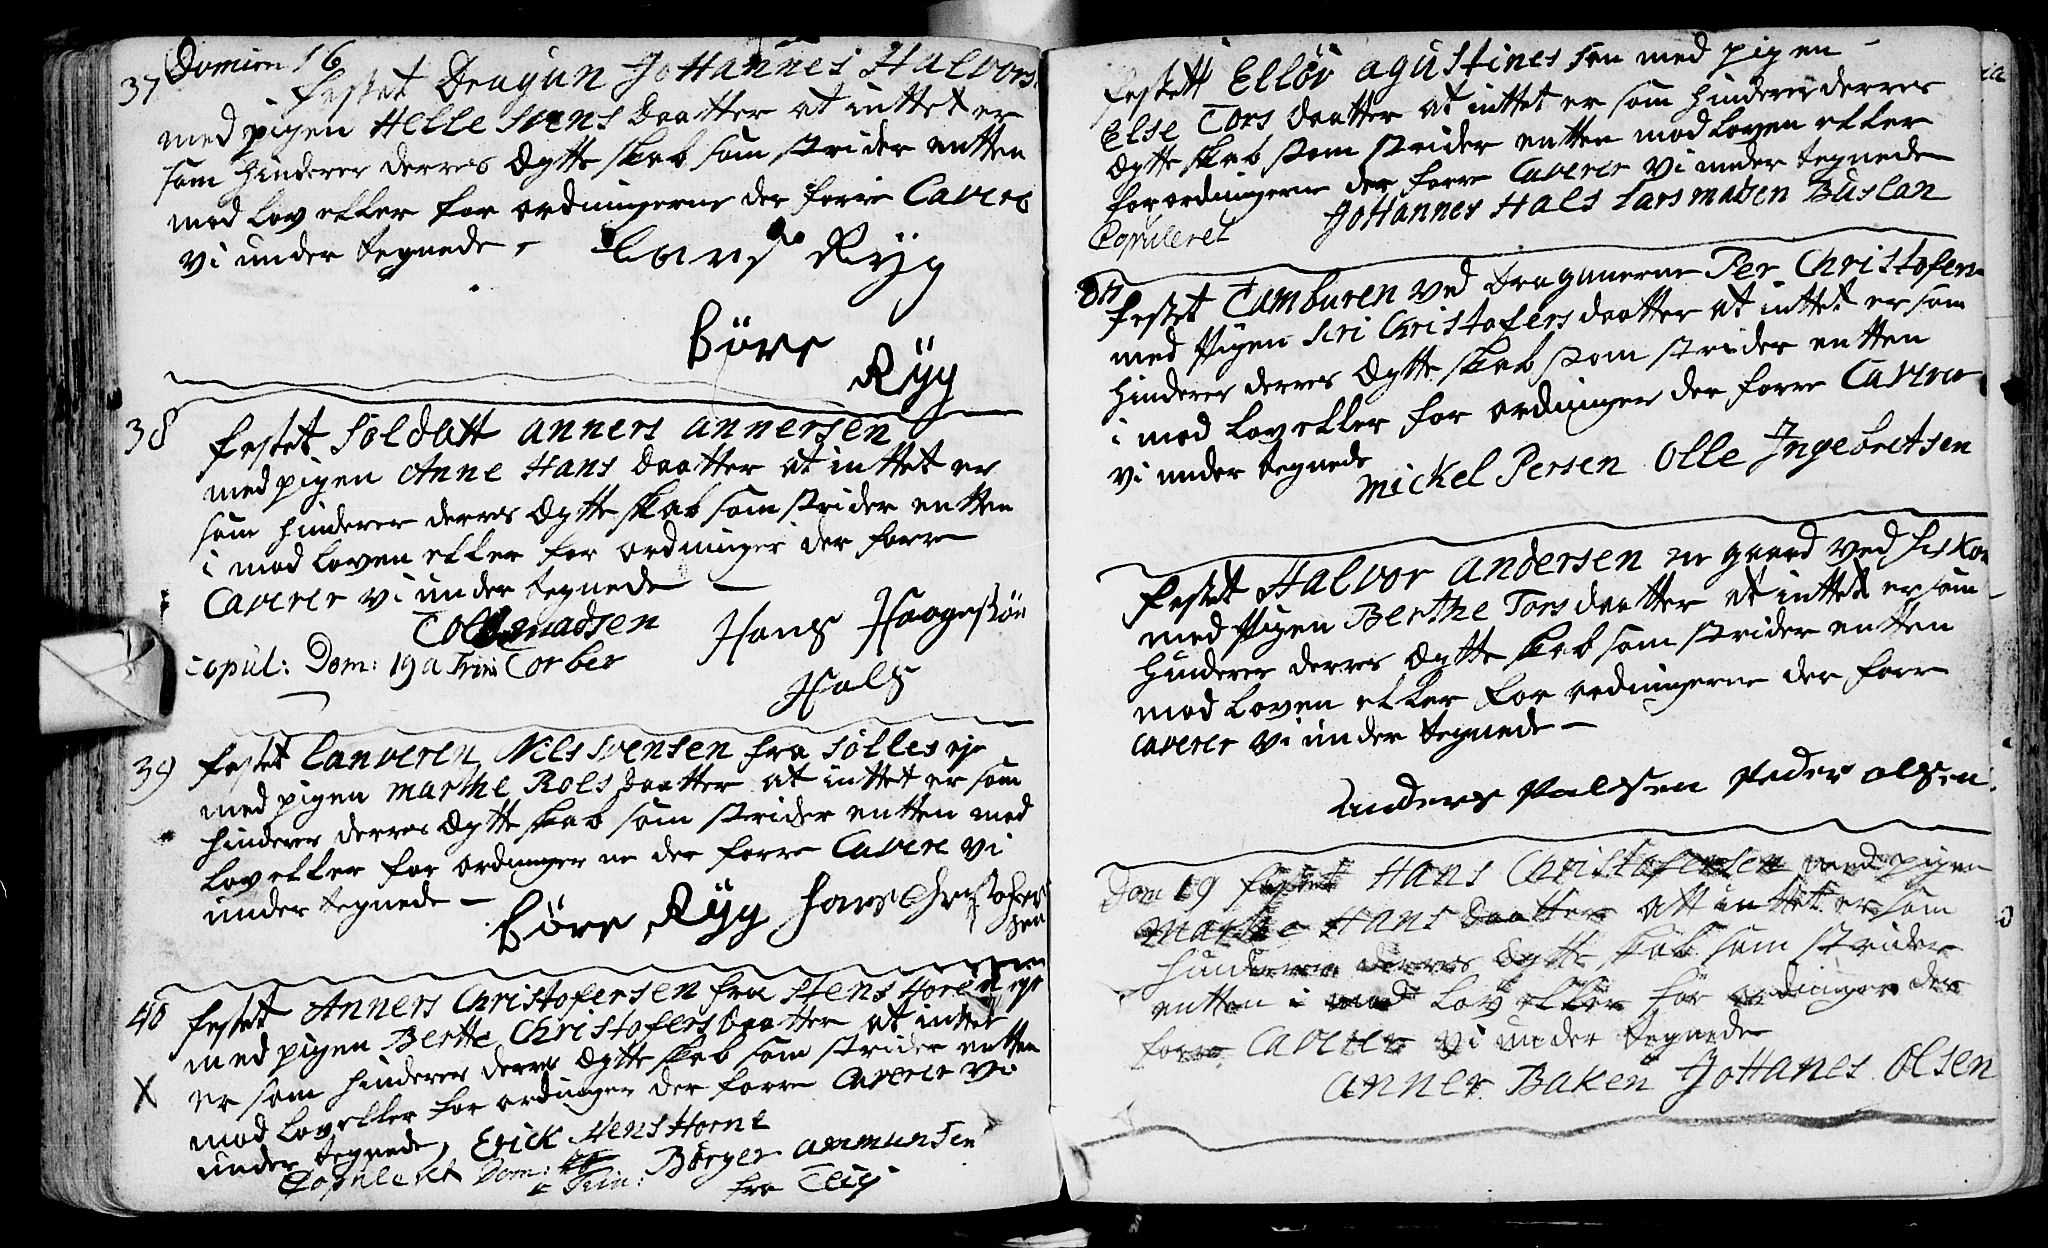 37 Domien 16
festet Dragun Johannes Halvors.
med pigen Helle Svens daatter at inttet er
som hinderer derres Ægtte skab som strider entten
mod lov eller for ordningerne der forre Cavere
vi under tegnede -
Lars Ryg
Börre
Ryg
38 festet Soldatt anners annersen
med pigen Anne Hans daatter at inttet er
som hinderer derres Ægtte skab som strider entten
i mod loven eller for ordninger der forre
Caverer vi under tegnede
madsen
Torber
Hans Haagensøn
Hals
Copul: Dom: 19 a Trin:
39 festet Nils Svensen fra Sølles eje
med pigen Marthe Roels daatter at inttet er som
hinderer derres Ægtte skab som strider entten mod
lov eller for ordninger ne der forre Cavere vi
under tegnede -
Börre Ryg Hans Christofer
sen
40 festet Anners Christofersen fra Stens Horne eje
med pigen Berthe Christofers daatter at inttet
er som hinderer derres Ægtte skab som strider entten
X mod lov eller for ordninger der forre Caverer vi
under tegnede, Erick Stens Horne
Copuleret Dom: a Trin: Börger ammunsen
fra
festett Ellöv agustines sen med pigen
Else Tors daatter at inttet er som hinderer derres
Ægtte skab som strider entten mod loven eller
forordningerne der forre Caverer vi under tegnede
Johannes Hals Lars madsen Buslan
Copuleret
festet Tamburen ved Dragunerne Per Christofersen
med Pigen Siri Christofers daatter at inttet er som
hinderer derres Ægtte skab som strider entten
i mod lov eller for ordninger der forre Caverer
vi under tegnede
Mickel Persen Olle Ingebretsen
festet Halvor andersen ne gaard ved
med Pigen Berthe Tors daatter at inttet er som
hinderer derres Ægtte skab som strider entten
mod loven eller for ordningerne der forr
caverer vi under tegnede -
Anders Palsen Peder olsen
Dom 19 festet Hans Christofersen med pigen
Marthe Hans daatter att inttet er som
hinderer derres Ægtte skab som strider
entten i mod lov eller for ordninger der
forre Caverer vi under tegnede
anner Baken Johanes Olsen